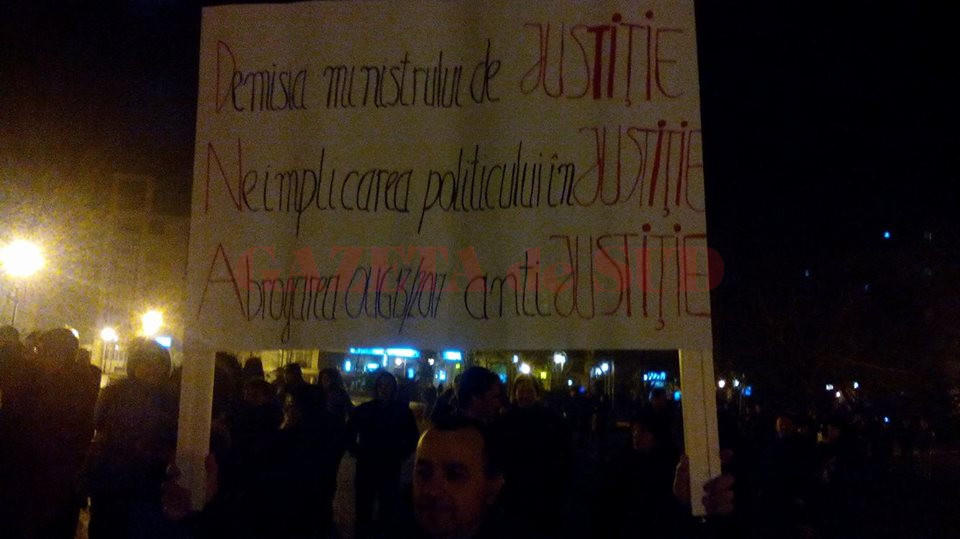 Demisia ministrului de JUSTIȚIE
Neimplicarea politicului în JUSTIȚIE
Abrogarea OUG13/2017 anti JUSTIȚIE
GAZETA de SUD